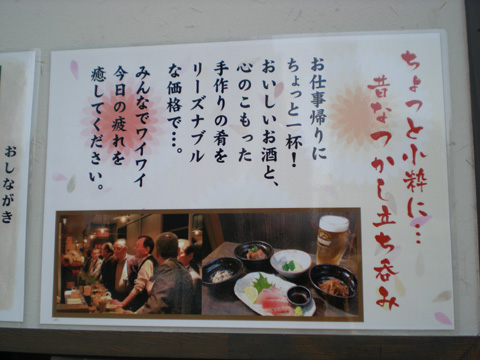 ちょっと小粋に…
昔なつかし立ち呑み
お仕事帰りに
ちょっと一杯!
おいしいお酒と、
心のこもった
手作りの肴を
リーズナブル
な価格で…。
みんなでワイワイ
今日の疲れを
癒してください。
おしながき